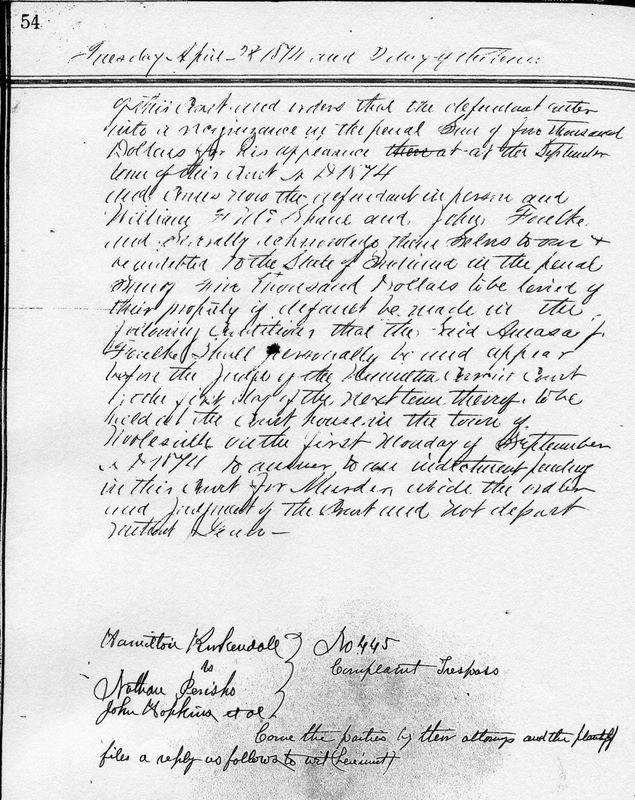 54
Tuesday April 28 1874 and 2 day of the Term
of this Court and orders that the defendant enter
into a recognizance in the penal Sum of five thousand
Dollars for his appearance there at at the September
term of this Court A D 1874
And Comes now the defendant in person and
William H Mc Shane and John Foulke
and severally acknowledge them Selves to owe &
be indebted to the State of Indiana in the penal
Sum of five Thousand Dollars to be levied of
their property if default be made in the
following Conditions that the Said Amasa J
Foulke Shall personally be and appear
before the Judge of the Hamilton Circuit Court
on the first day of the next term thereof to be
held at the Court house in the town of
Noblesville on the first Monday of September
A D 1874 to answer to an indictment pending
in this Court for Murder, abide the order
and Judgment of the Court and not depart
without Leave —
Hamilton Kurkendall
vs
Nathan Perisho
John Hopkins et al
No 445
Complaint Trespass
Come the parties by their attorneys and the plaintiff
files a reply as follows to wit (here insert)